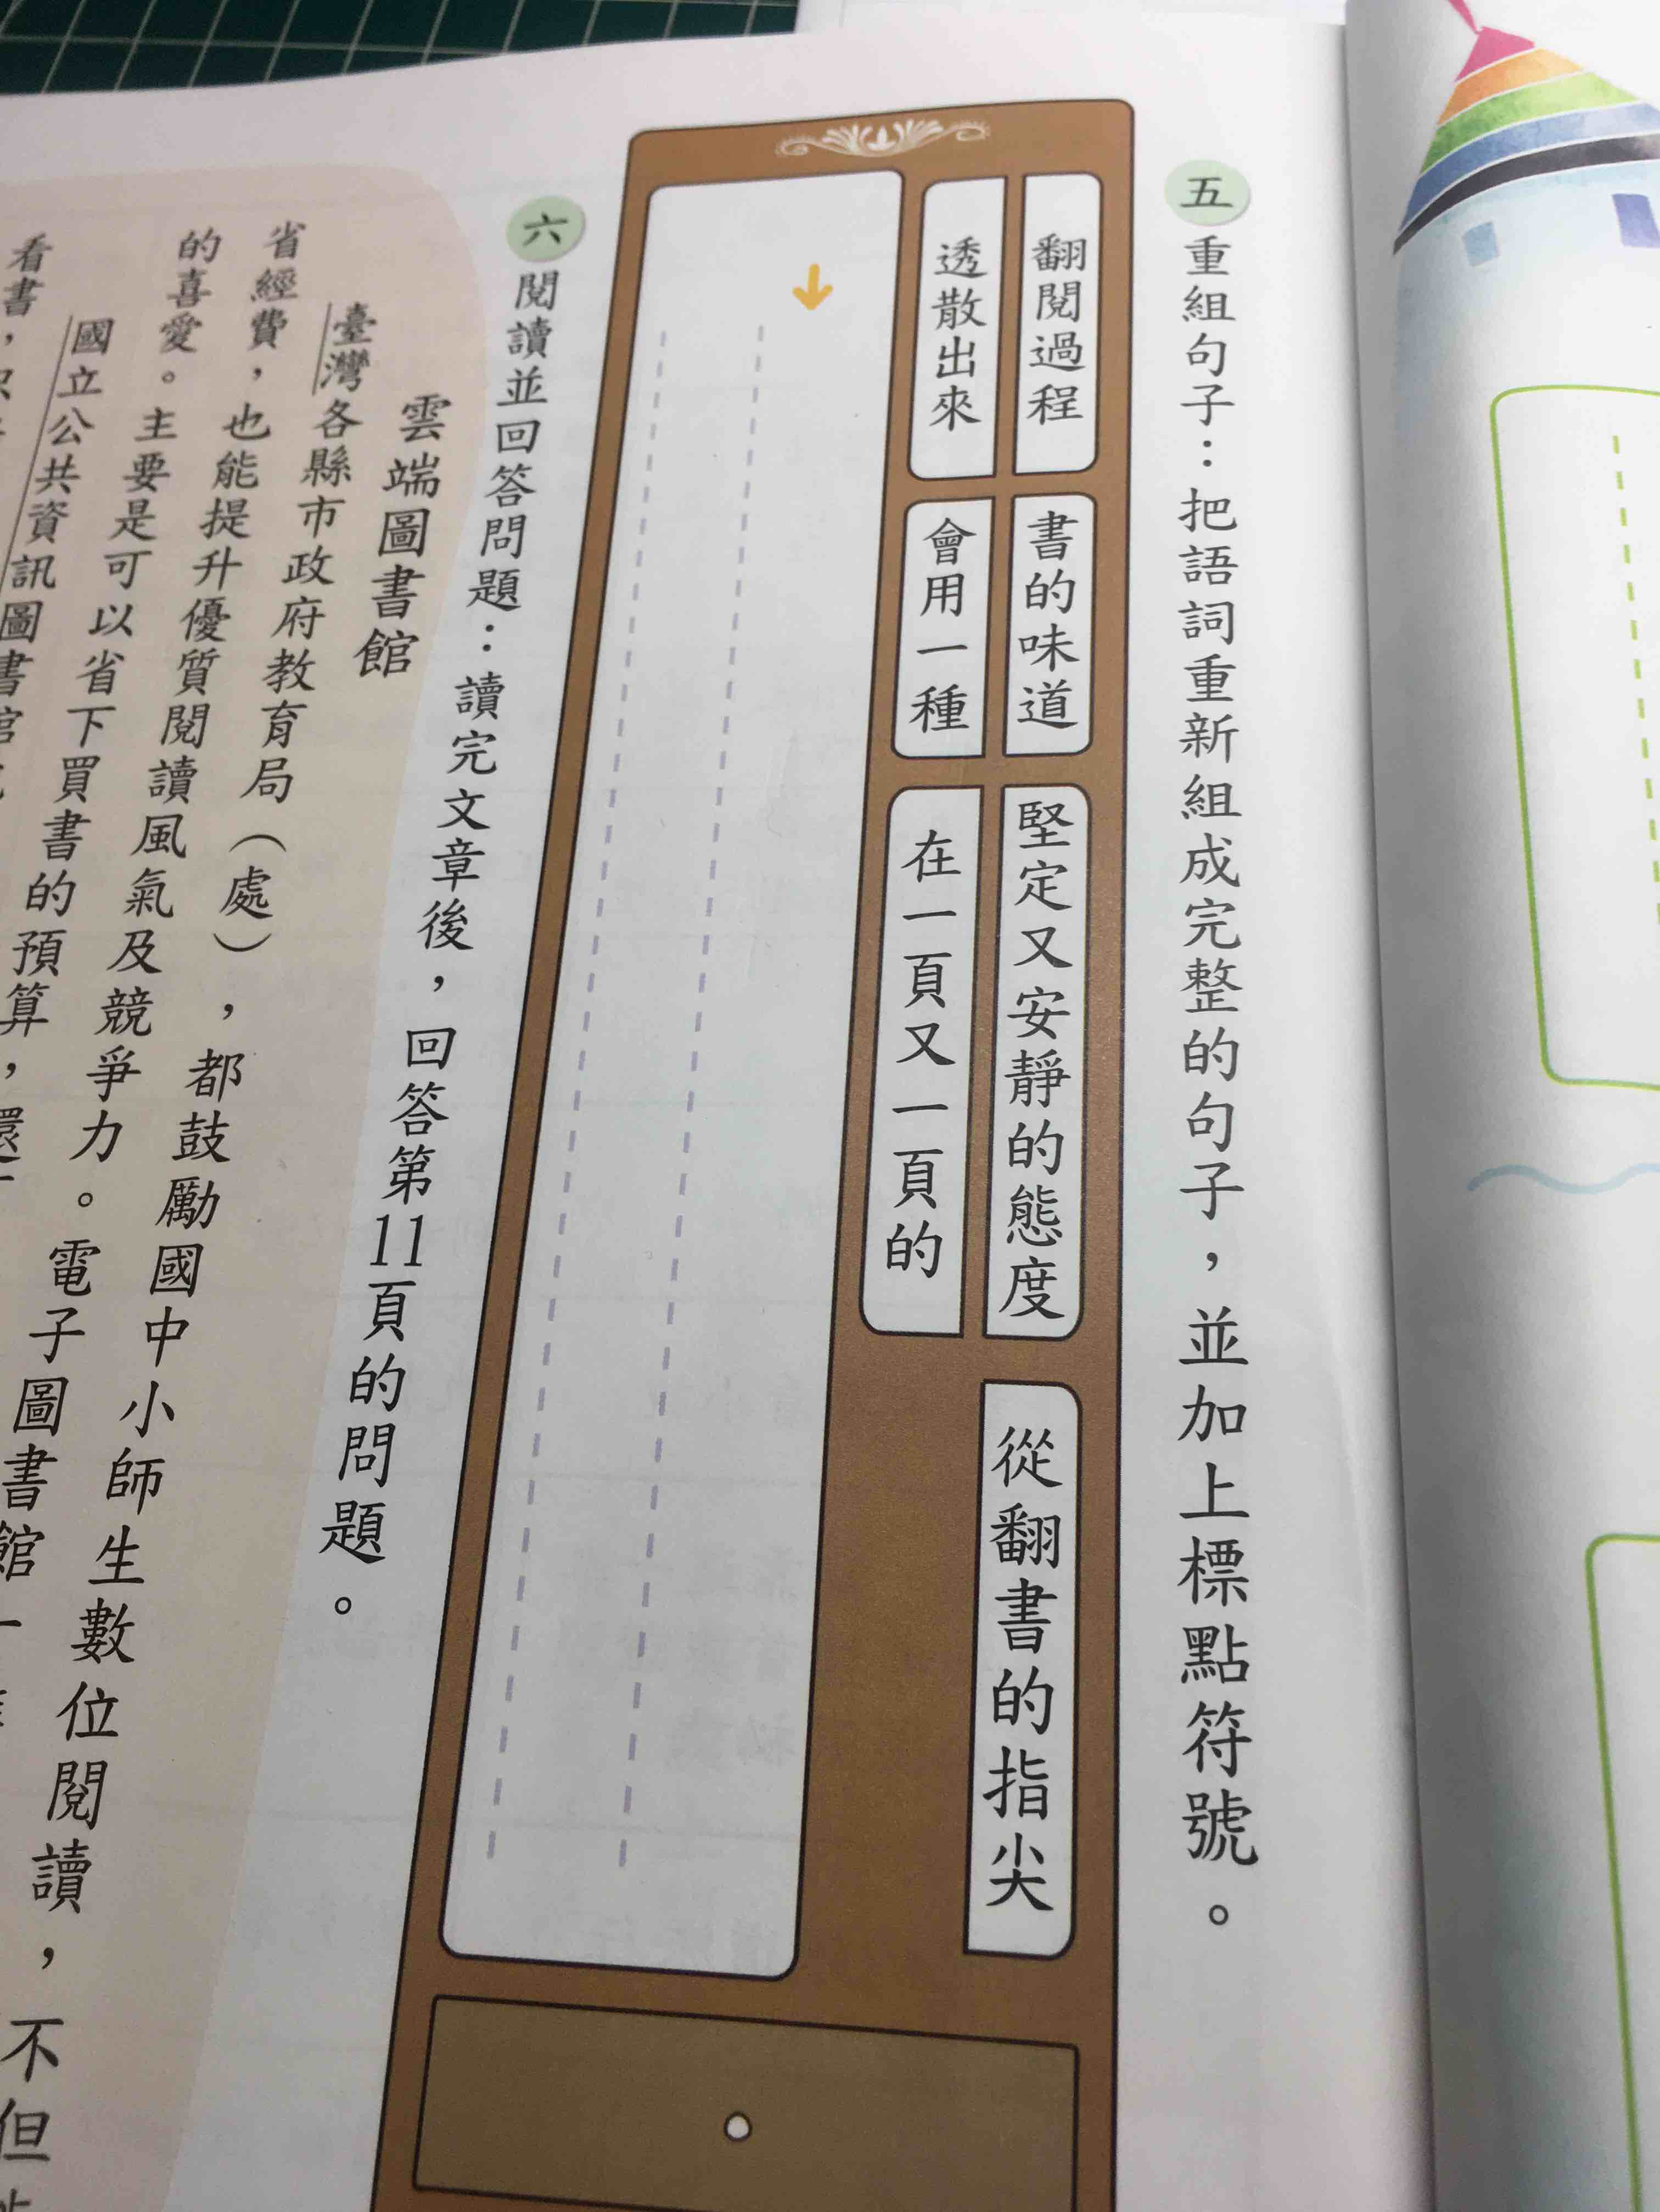 五 重組句子：把語詞重新組成完整的句子，並加上標點符號。
翻閱過程
書的味道
堅定又安靜的態度
從翻書的指尖
透散出來
會用一種
在一頁又一頁的
六 閱讀並回答問題：讀完文章後，回答第11頁的問題。
雲端圖書館
臺灣各縣市政府教育局（處），都鼓勵國中小師生數位閱讀，不但
省經費，也能提升優質閱讀風氣及競爭力。電子圖書館
的喜愛。主要是可以省下買書的預算，還
國立公共資訊圖書館
看書，